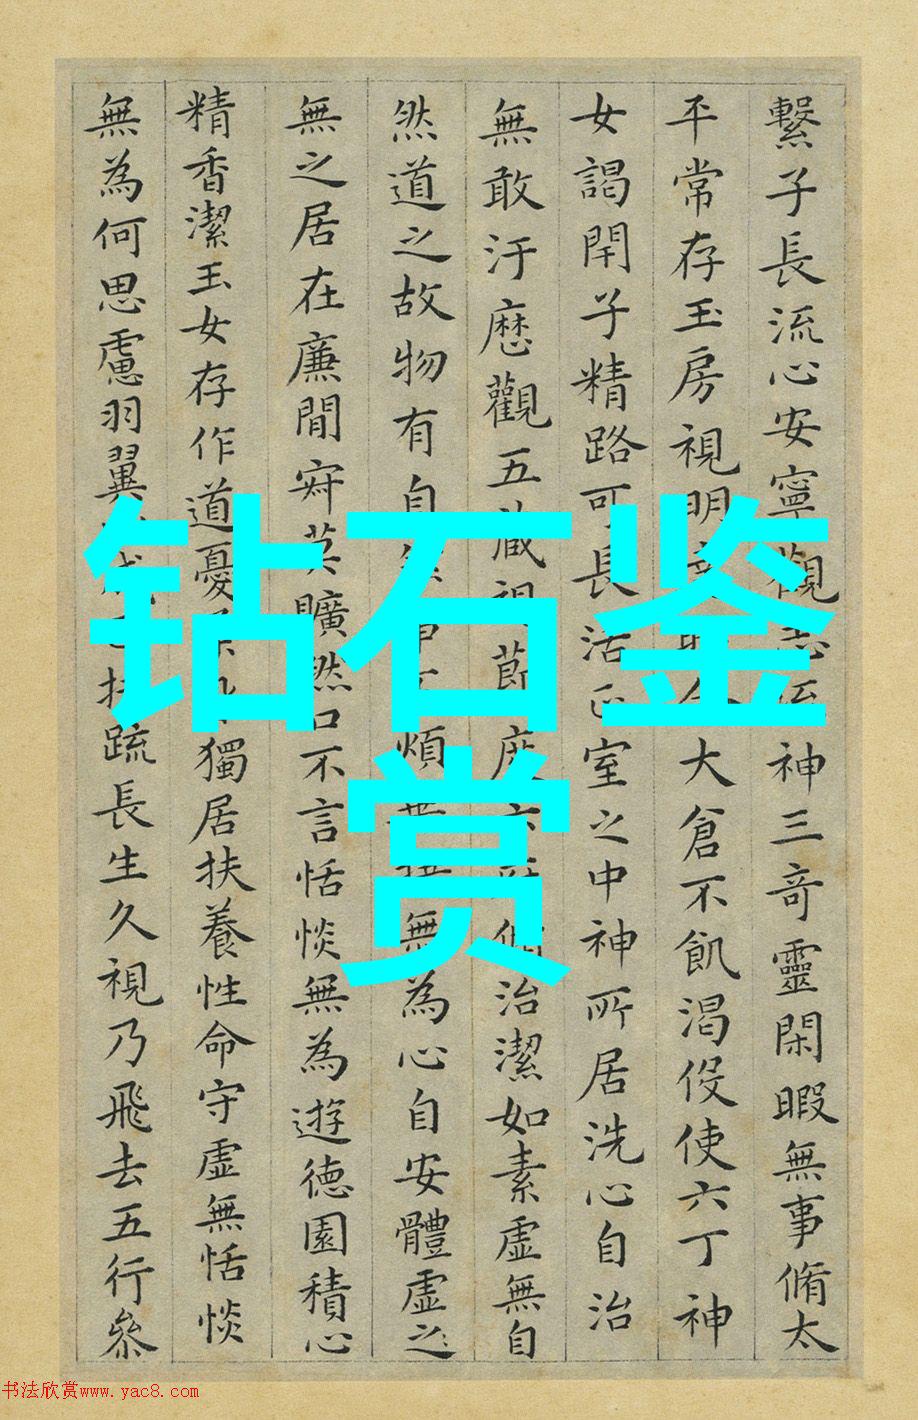 繫子長流心安寧觀志遊神三竒靈閑暇無事脩太
平常存玉房視明達時念大倉不飢渴伇使六丁神
女謁閇子精路可長活正室之中神所居洗心自治
無敢汙歷觀五藏視莭度六府脩治潔如素虛無自
然道之故物有自然事不煩無為心自安體虛之
無之居在廉間𡧯莫曠然口不言恬惔無為遊德園積心
精香潔玉女存作道憂獨居扶養性命守虛無恬惔
無為何思慮羽翼扶疏長生久視乃飛去五行叅
钻石鉴
赏
书法欣赏www.yac8.com